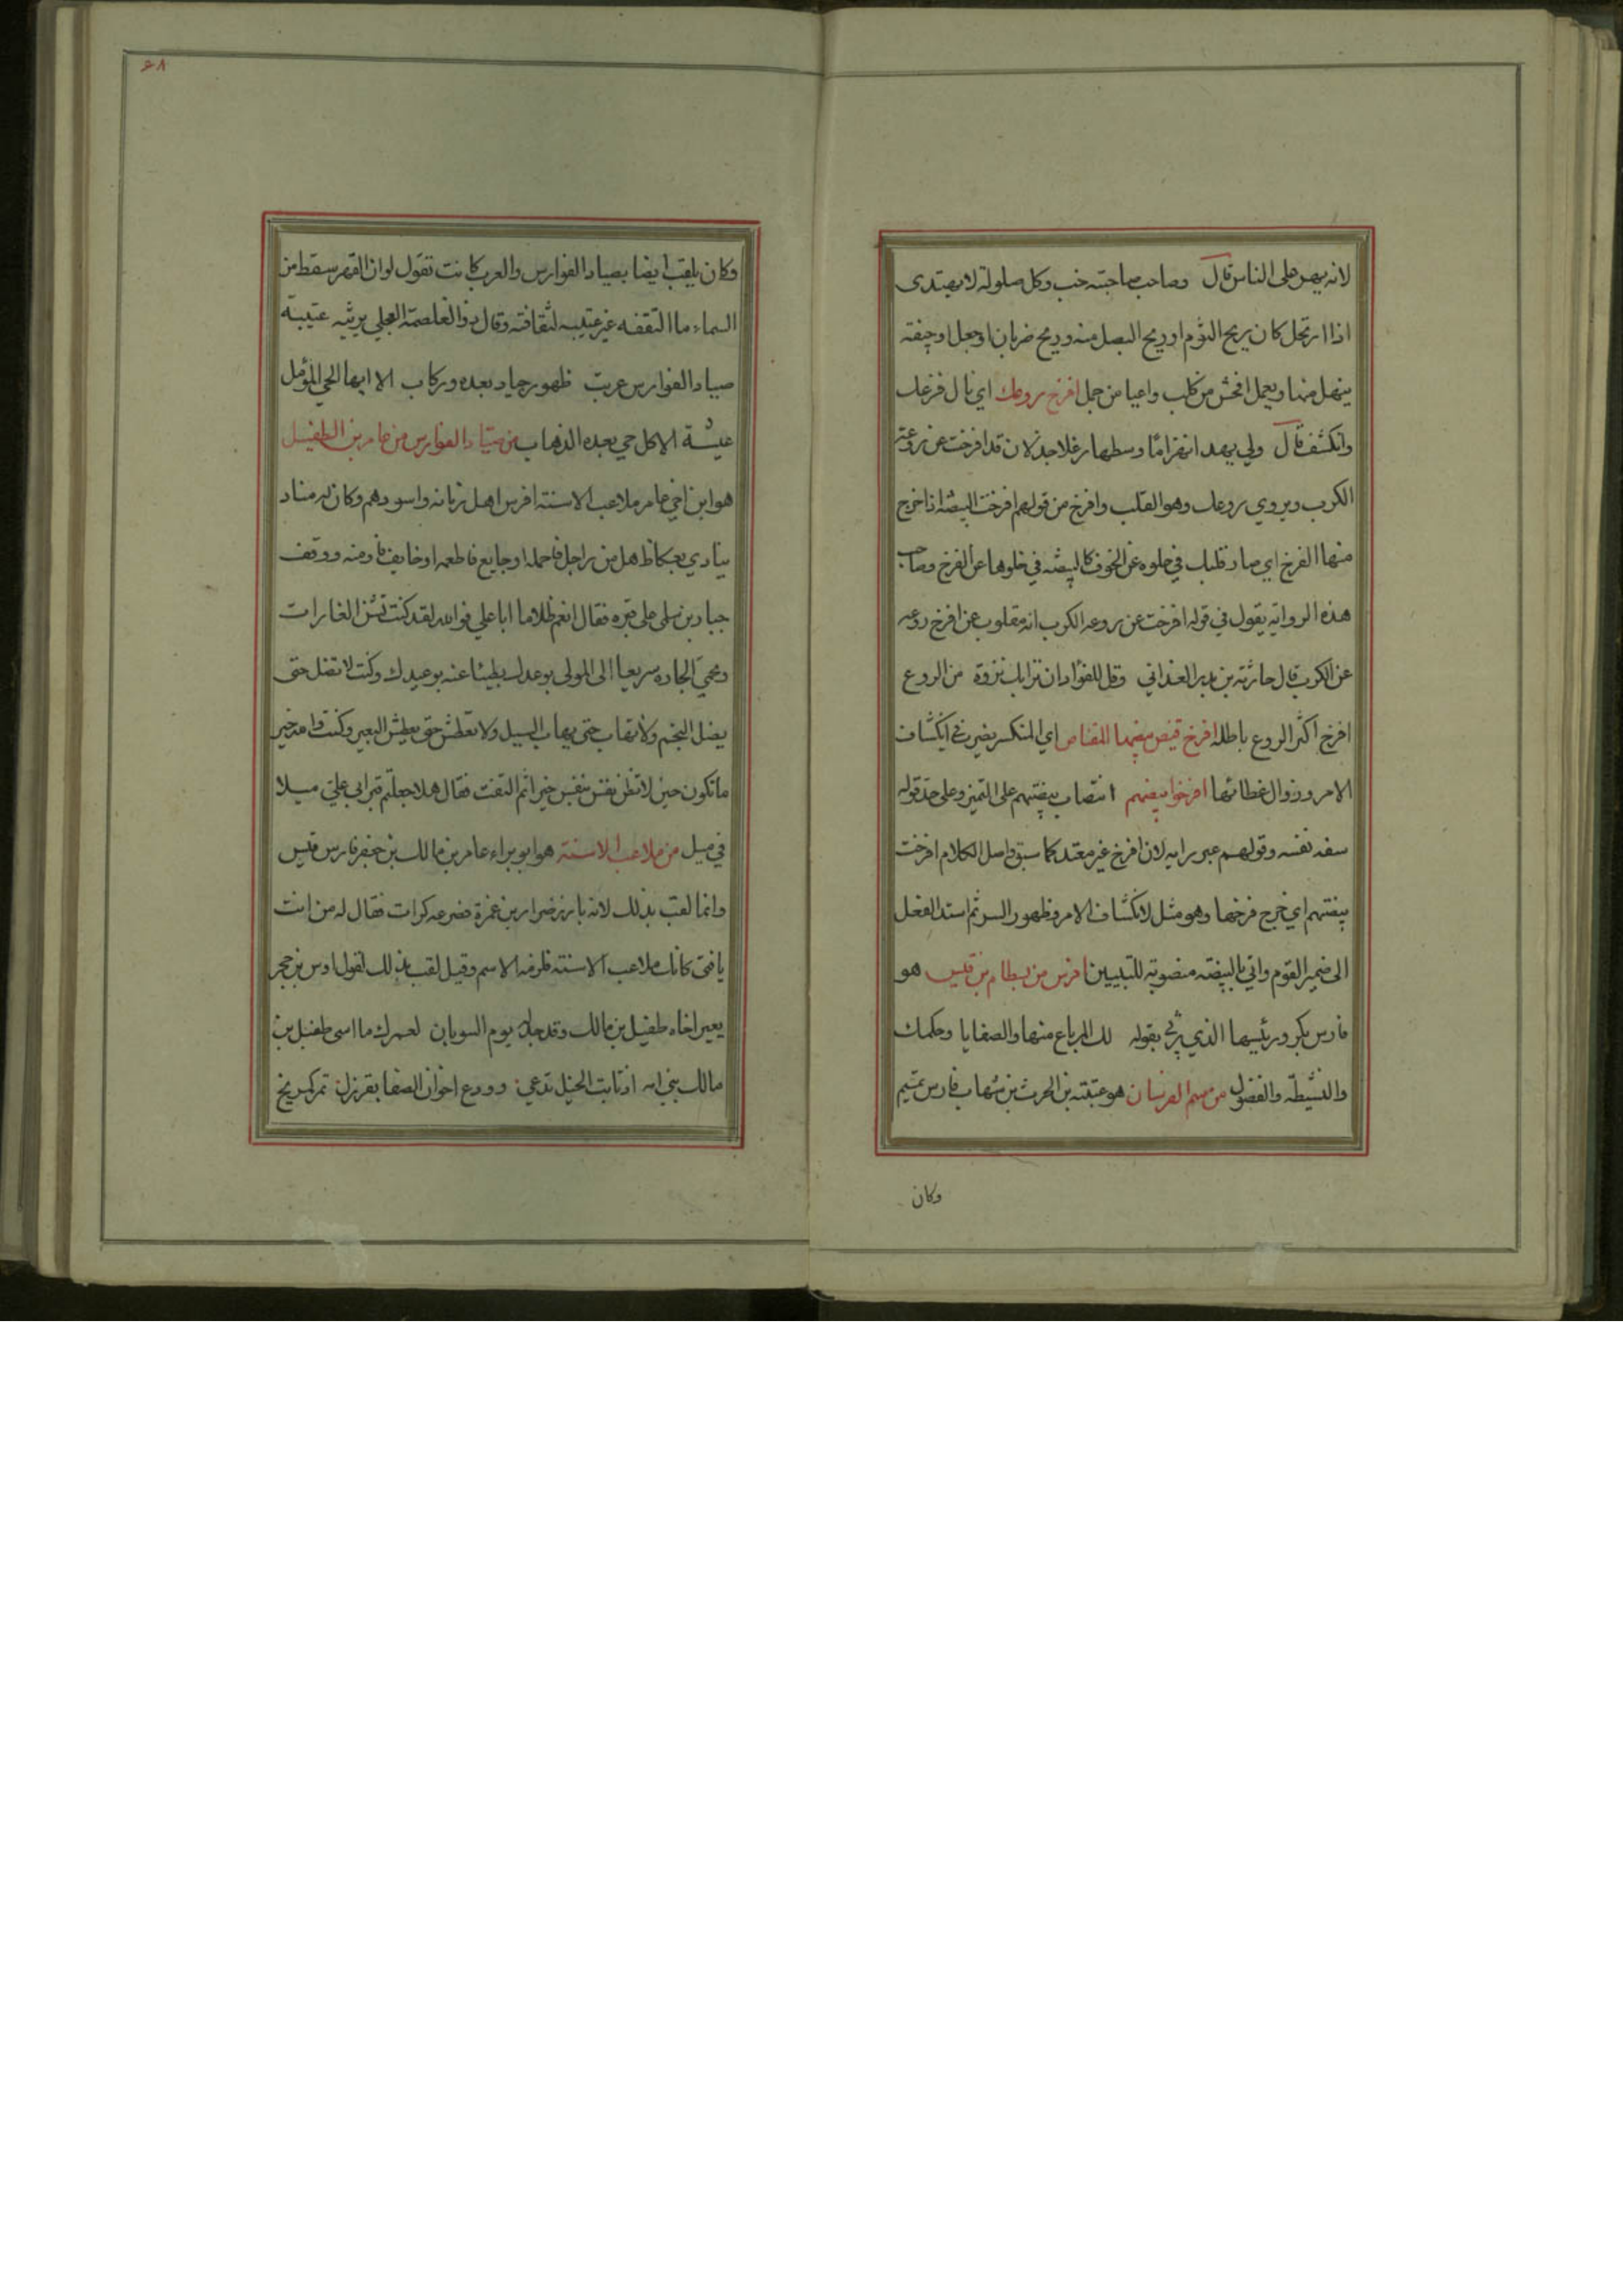 لانه يهر على الناس قال وصاحب صاحبته خب وكل صلولة لا يهتدى
اذا ارتحل كان ريح الثوم او ريح البصل منه وريح ضربان او جعل او جيفة
ينهل منها ويعمل افحش من كلب واعيا من جمل افرخ روعك اي زال فزعك
وانكشف قال ولي يهد انهزاما وسطها زغلا جذلان قد افرخت عن روعه
الكرب ويروي روعك وهو القلب وافرخ من قولهم افرخت البيضة اذا خرج
منها الفرخ اي صار قلبك في خلوه عن الخوف كالبيضة في خلوها عن الفرخ وصاحب
هذه الرواية يقول في قوله افرخت عن روعه الكرب انه مقلوب عن افرخ روعه
عن الكرب قال حارثة بن بدر الغداني وقل للفؤاد ان نزا بك نزوة من الروع
افرخ اكثر الروع باطله افرخ قيض بيضها المنقاض اي المنكسر يضرب في انكشاف
الامر وزوال غطائها افرخوا بيضهم انتصاب بيضتهم على التميز وعلى حد قوله
سفه نفسه وقولهم عبر رايه لان افرخ غير معتد كما سبق واصل الكلام افرخت
بيضتهم اي خرج فرخها وهو مثل لانكشاف الامر وظهور السر ثم اسند الفعل
الى ضمير القوم واتي بالبيضة منصوبة للتبيين افرس من بسطام بن قيس هو
فارس بكر ورئيسها الذي رثي بقوله لك المرباع منها والصفايا وحكمك
والنشيطة والفضول من سم الفرسان هو عتبته بن الحرث بن شهاب فارس تميم
وكان
٦٨
وكان يلقب ايضا بصياد الفوارس والعرب كانت تقول لو ان القمر سقط من
السماء ما التقفه غير عتيبه لثقافته وقال ذو الغلصمة العجلي يرثيه عتيبة
صياد الفوارس عريت ظهور جياد بعده وركاب الا ايها الحي المؤمل
عيشة الا كل حي بعده الذهاب من صياد الفوارس من عامر بن الطفيل
هو ابن اخي عامر ملاعب الاسنة افرس اهل زمانه واسودهم وكان له مناد
ينادي بعكاظ هل من راجل فاحمله او جايع فاطعمه او خايف فاومنه ووقف
جبار بن سلمى على قبره فقال انعم ظلاما ابا علي فوالله لقد كنت تشن الغارات
وتحمي الجاره سريعا الى المولى بوعدك بطيئا عنه بوعيدك وكنت لا تضل حتى
يضل النجم ولا تهاب حتى يهاب السيل ولا تعطش حتى يعطش البعير وكنت والله خير
ما تكون حين لا تظن نفس بنفس خيرا ثم التفت فقال هلا جعلتم قبر ابي علي ميلا
في ميل من ملاعب الاسنة هو ابو براء عامر بن مالك بن جعفر فارس قيس
وانما لقب بذلك لانه بارز ضرار بن عمرة فضرعه كرات فقال له من انت
يا فتى كانك ملاعب الاسنة فلزمه الاسم وقيل لقب بذلك لقول اوس بن حجر
يعير اخاه طفيل بن مالك وقد خذله يوم السوبان لعمرك ما اسى طفيل بن
مالك بني امه اذ ثابت الخيل تدعي وودع اخوان الصفا بقرزل تمر كمريخ